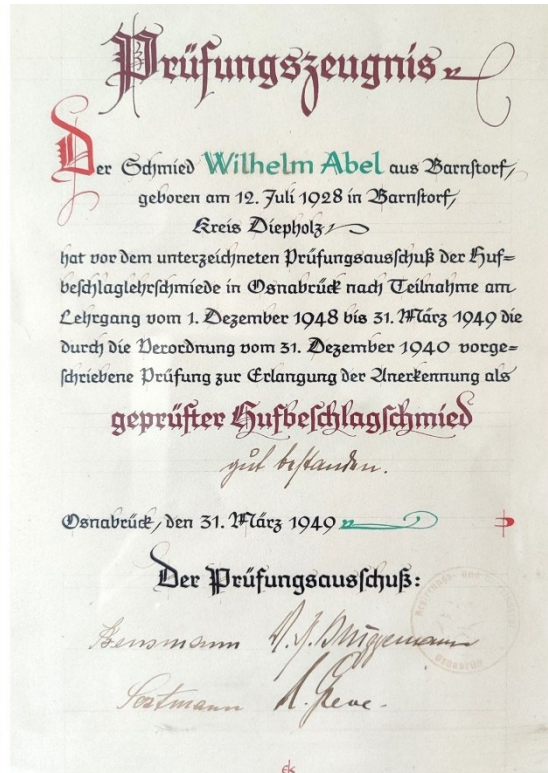 Prüfungszeugnis
Der Schmied Wilhelm Abel aus Barnstorf,
geboren am 12. Juli 1928 in Barnstorf,
Kreis Diepholz
hat vor dem unterzeichneten Prüfungsausschuß der Huf=
beschlaglehrschmiede in Osnabrück nach Teilnahme am
Lehrgang vom 1. Dezember 1948 bis 31. März 1949 die
durch die Verordnung vom 31. Dezember 1940 vorge=
schriebene Prüfung zur Erlangung der Anerkennung als
geprüfter Hufbeschlagschmied
gut bestanden.
Osnabrück, den 31. März 1949
Der Prüfungsausschuß: